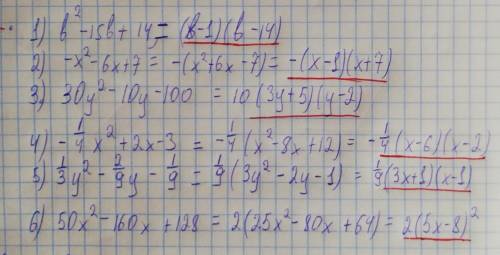 1) b² - 15b + 14 = (b-1)(b-14)
2) -x² - 6x + 7 = -(x² + 6x - 7) = -(x-1)(x+7)
3) 30y² - 10y - 100 = 10(3y+5)(y-2)
4) -1/4 x² + 2x - 3 = -1/4 (x² - 8x + 12) = -1/4 (x-6)(x-2)
5) 1/3 y² - 2/9 y - 1/9 = 1/9 (3y² - 2y - 1) = 1/9 (3x+1)(x-1)
6) 50x² - 160x + 128 = 2(25x² - 80x + 64) = 2(5x-8)²